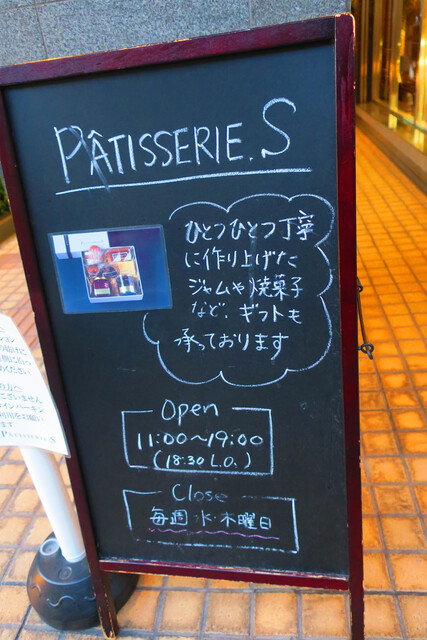 PÂTISSERIE.S
ひとつひとつ丁寧
に作り上げた
ジャムや焼菓子
など、ギフトも
承っております
Open
11:00〜19:00
(18:30 L.O.)
Close
毎週 水・木曜日
PÂTISSERIE. S